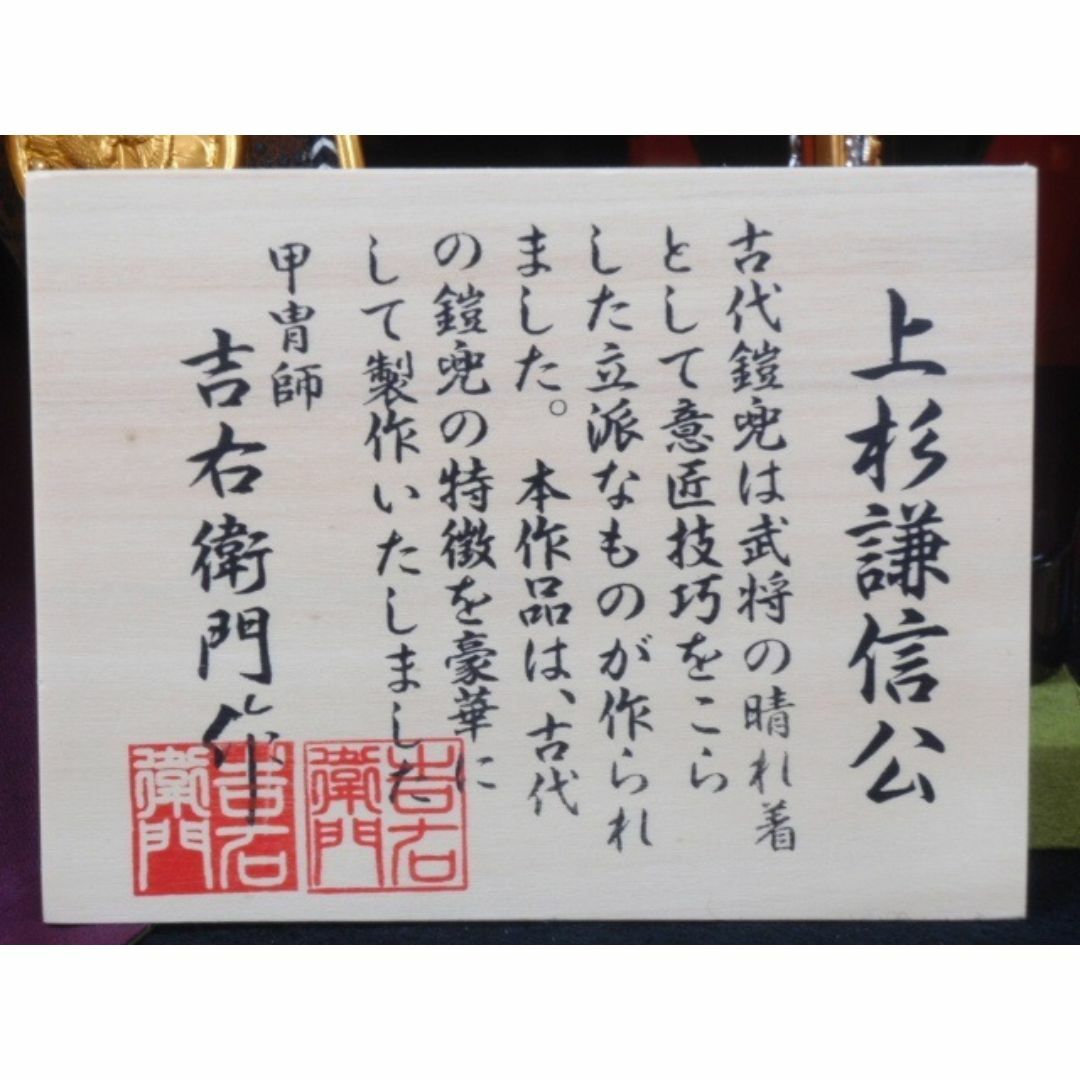 上杉謙信公
古代鎧兜は武将の晴れ着
として意匠技巧をこら
した立派なものが作られ
ました。本作品は、古代
の鎧兜の特徴を豪華に
して製作いたしました
甲冑師
吉右衛門作
吉右
衛門
吉右
衛門